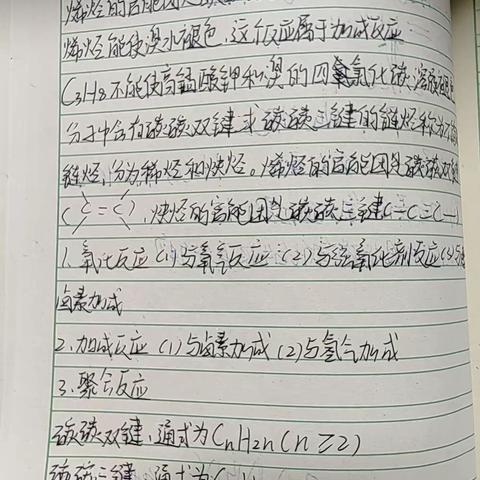 烯烃的官能团
烯烃能使溴水褪色,这个反应属于加成反应
C₃H₈不能使高锰酸钾和溴的四氯化碳溶液
分子中含有碳碳双键或碳碳三键的链烃称为不
链烃,分为稀烃和炔烃。烯烃的官能团是碳碳双
(C=C),炔烃的官能团是碳碳三键(-C≡C-)
1.氧化反应 (1)与氧气反应 (2)与强氧化剂反应(3)与
卤素加成
2.加成反应 (1)与卤素加成 (2)与氢气加成
3.聚合反应
碳碳双键,通式为CnH2n(n≥2)
碳碳三键,通式为C